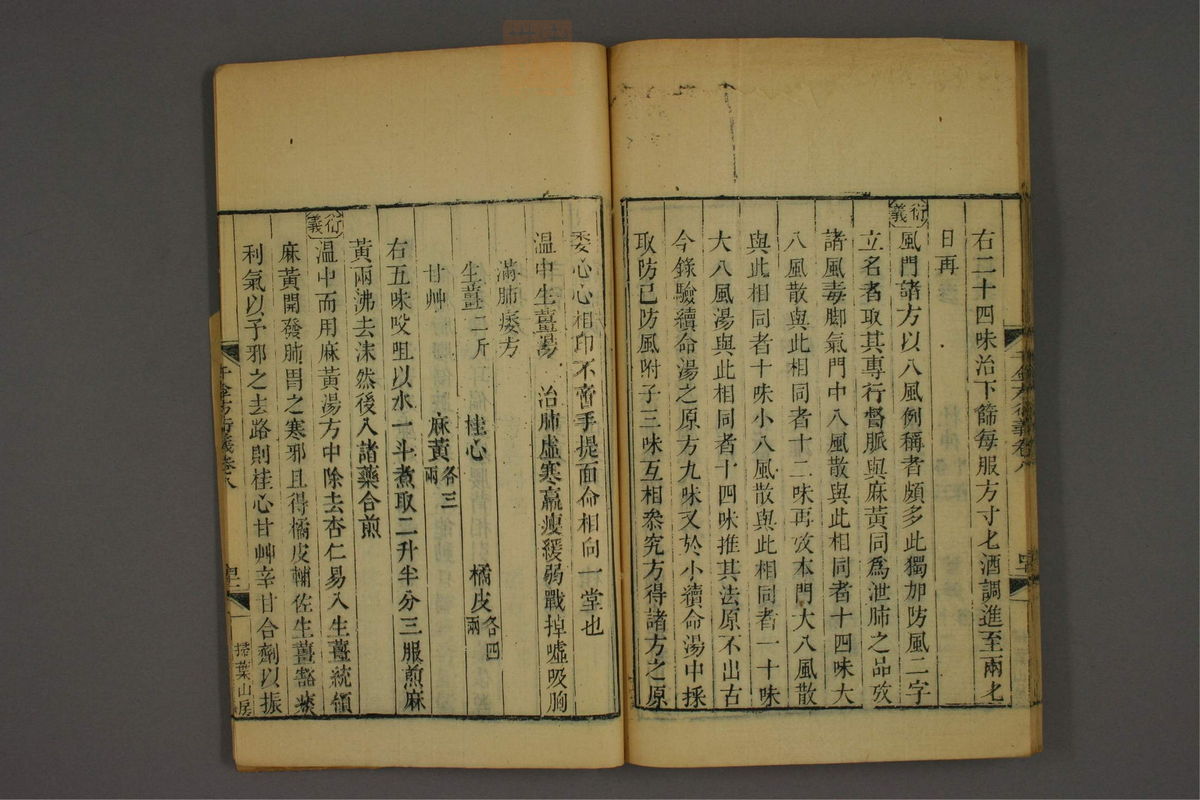 右二十四味治下篩每服方寸匕酒調進至兩匕
日再
衍義
風門諸方以八風例稱者頗多此獨加防風二字
立名者取其專行督脈與麻黃同爲泄肺之品攷
諸風毒脚氣門中八風散與此相同者十四味大
八風散與此相同者十二味再攷本門大八風散
與此相同者十味小八風散與此相同者一十味
大八風湯與此相同者十四味推其法原不出古
今錄驗續命湯之原方九味又於小續命湯中採
取防已防風附子三味互相叅究方得諸方之原
委心心相印不啻手提面命相向一堂也
温中生薑湯 治肺虛寒羸瘦緩弱戰掉噓吸胸
滿肺痿方
生薑二斤 桂心 橘皮各四兩
甘艸 麻黃各三兩
右五味㕮咀以水一斗煮取二升半分三服煎麻
黃兩沸去沫然後入諸藥合煎
衍義
温中而用麻黃湯方中除去杏仁易入生薑統領
麻黃開發肺胃之寒邪且得橘皮輔佐生薑豁痰
利氣以予邪之去路則桂心甘艸辛甘合劑以振
千金方衍義卷八
掃葉山房